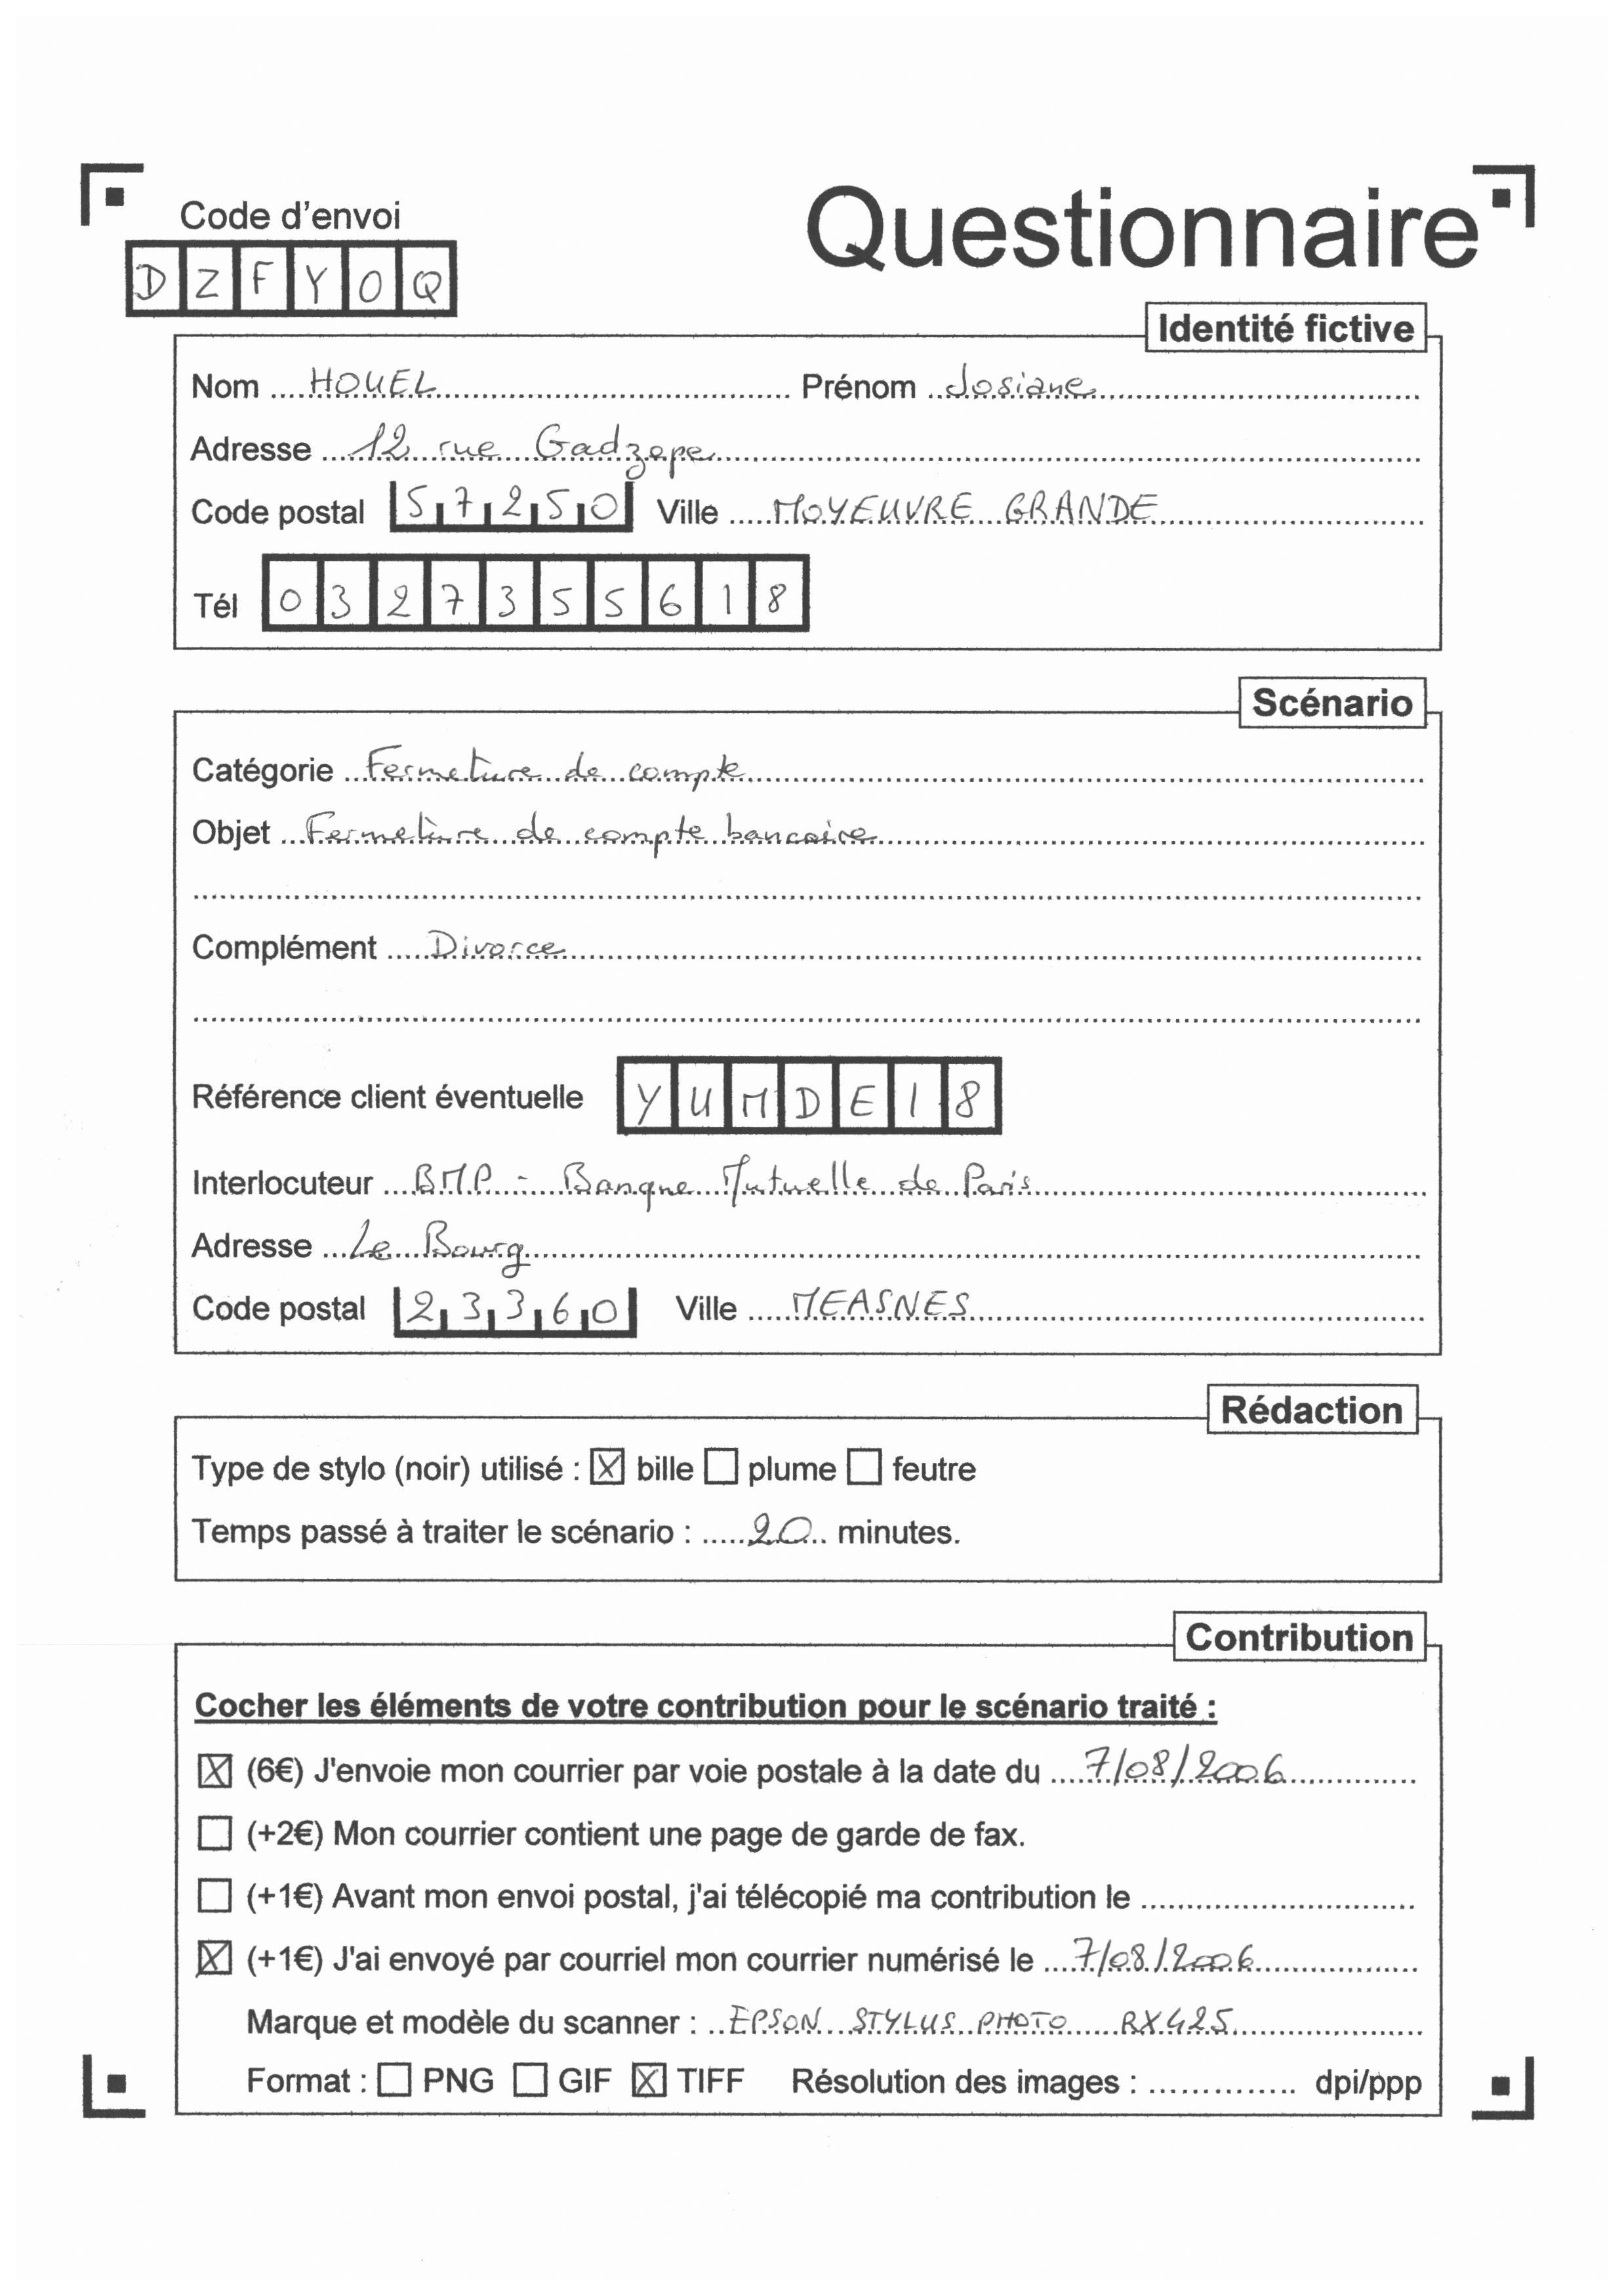 Questionnaire
Code d'envoi
DZFYOQ
Identité fictive
Nom HOUEL Prénom Josiane
Adresse 12 rue Gadzepe
Code postal 57250 Ville MOYEUVRE GRANDE
Tél 0327355618
Scénario
Catégorie Fermeture de compte
Objet Fermeture de compte bancaire
Complément Divorce
Référence client éventuelle YUMDE18
Interlocuteur BMP - Banque Mutuelle de Paris
Adresse Le Bourg
Code postal 23360 Ville MEASNES
Rédaction
Type de stylo (noir) utilisé : bille plume feutre
Temps passé à traiter le scénario : 20 minutes.
Contribution
Cocher les éléments de votre contribution pour le scénario traité :
(6€) J'envoie mon courrier par voie postale à la date du 7/08/2006
(+2€) Mon courrier contient une page de garde de fax.
(+1€) Avant mon envoi postal, j'ai télécopié ma contribution le
(+1€) J'ai envoyé par courriel mon courrier numérisé le 7/08/2006
Marque et modèle du scanner : EPSON STYLUS PHOTO RX425
Format : PNG GIF TIFF Résolution des images : dpi/ppp